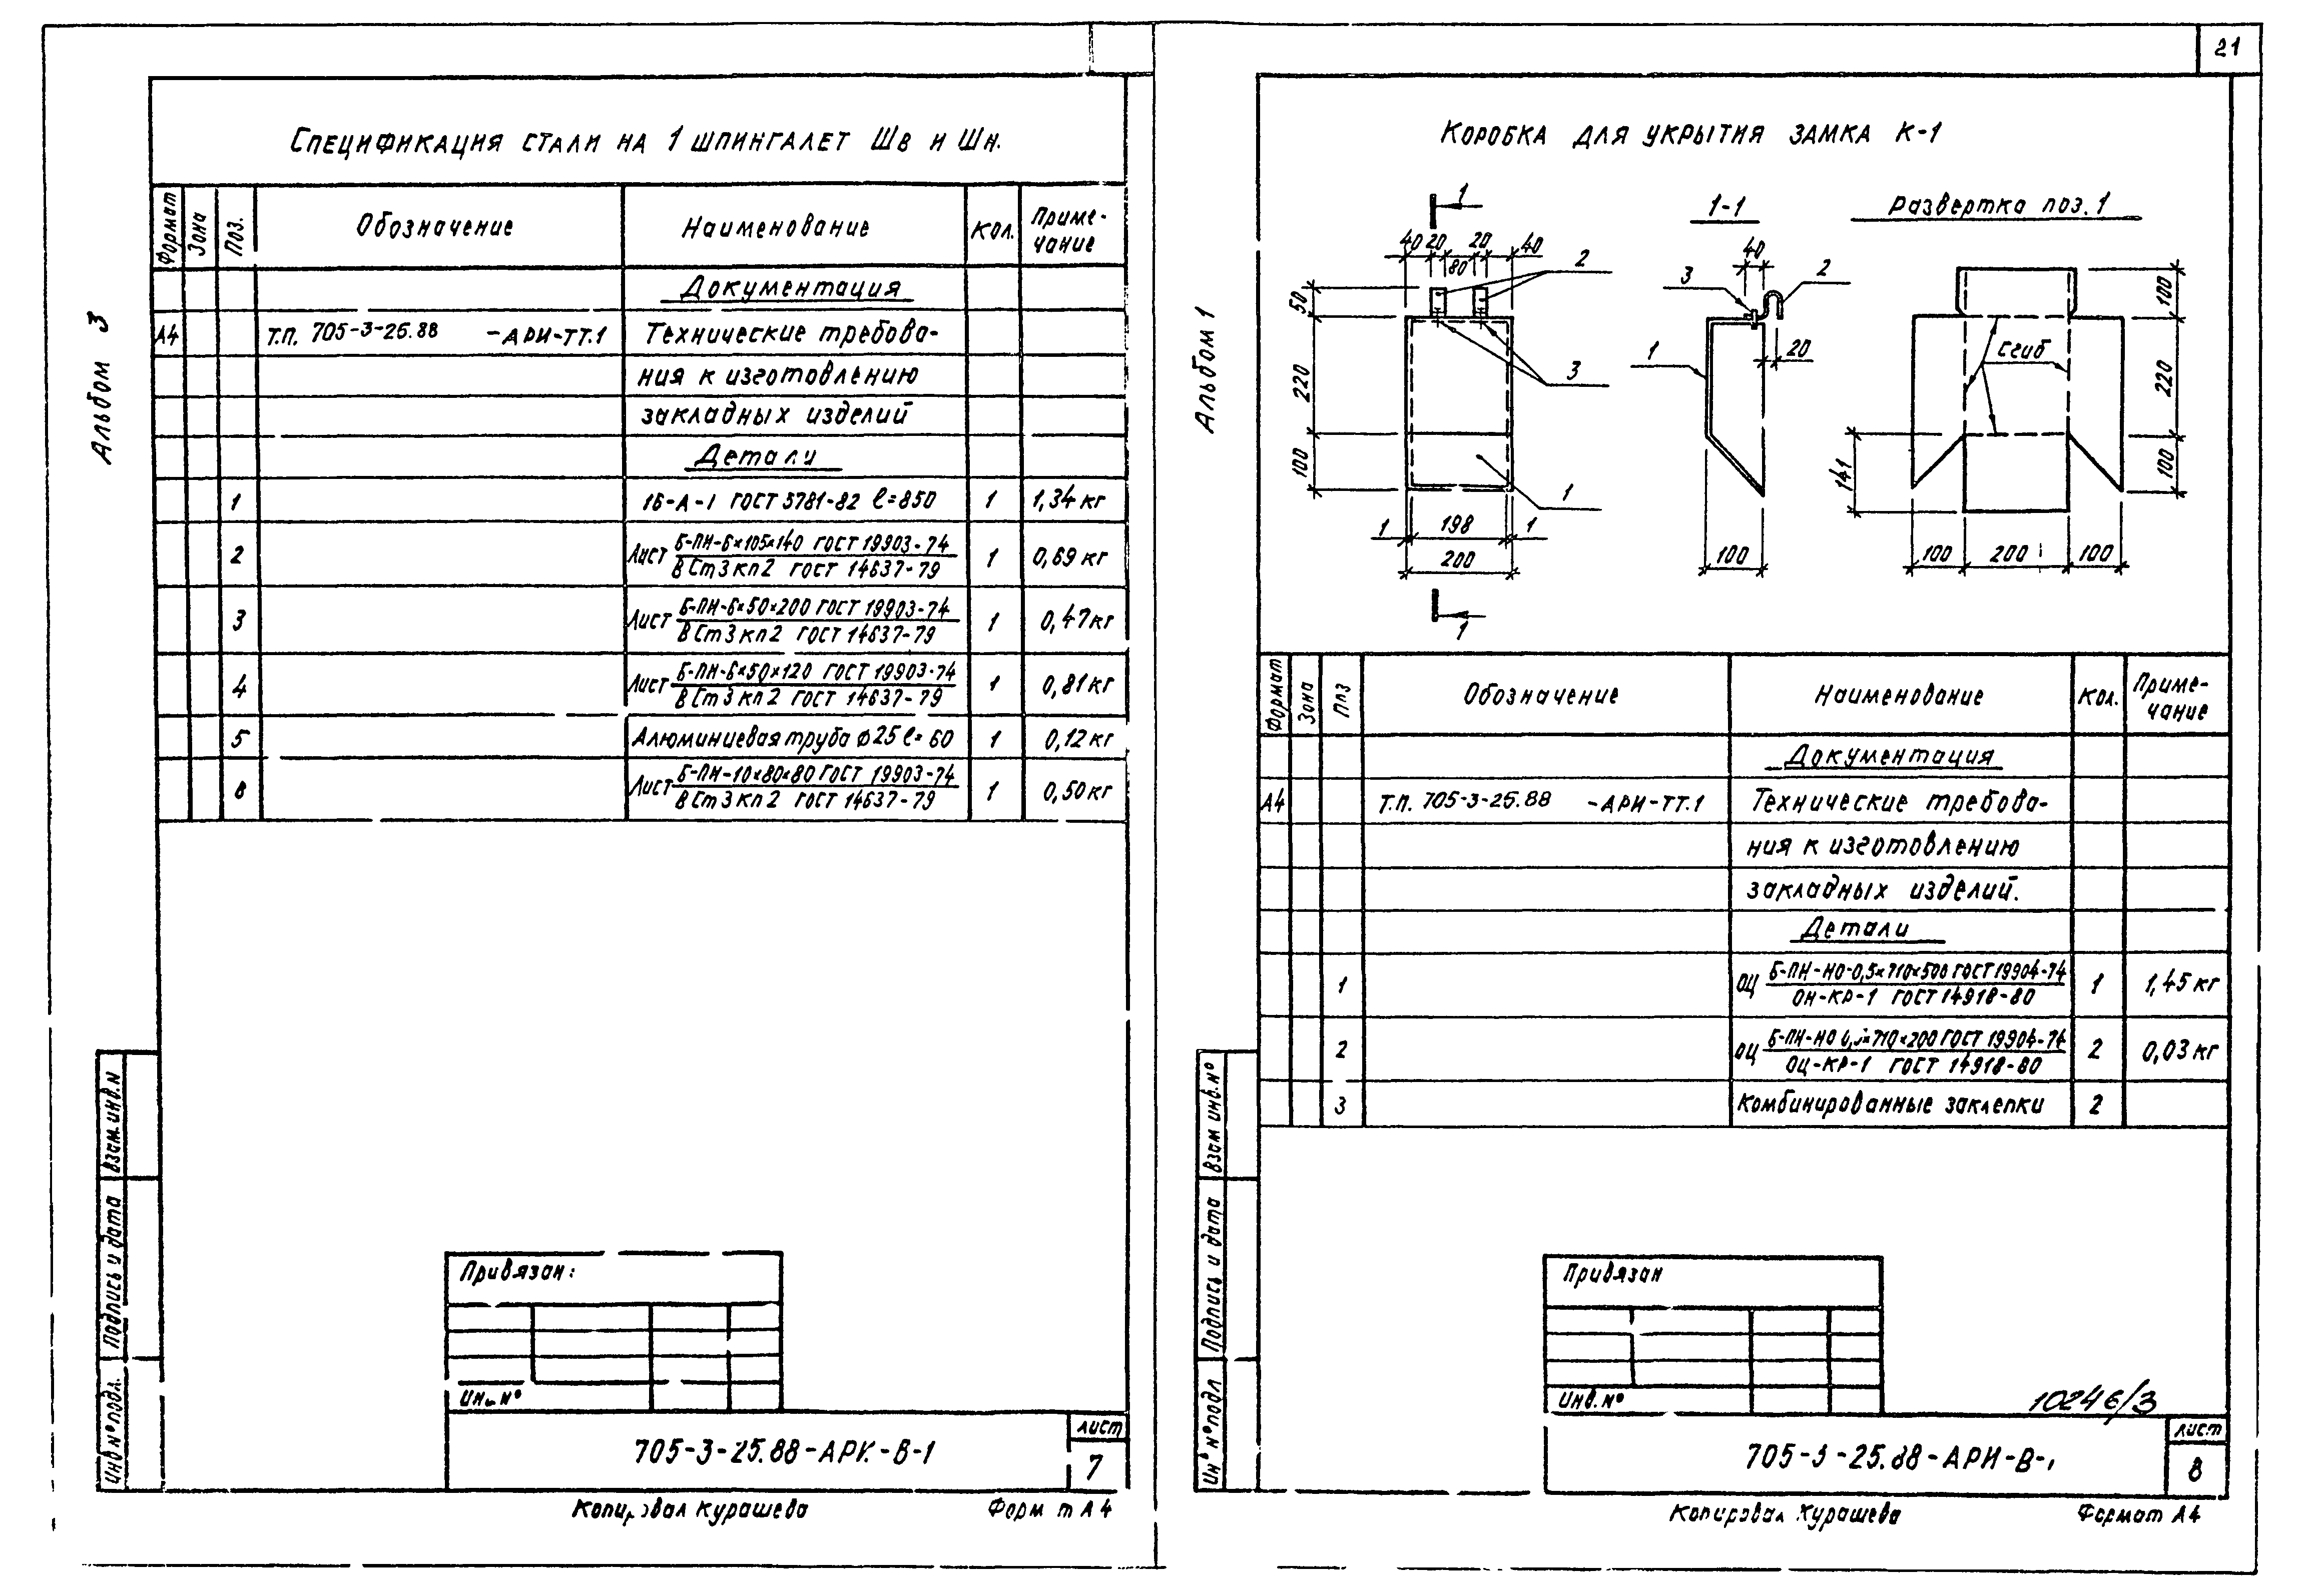 21
Альбом 3
Спецификация стали на 1 шпингалет Шв и Шн.
Формат Зона Поз. Обозначение Наименование Кол. Приме-
чание
Документация
А4 Т.П. 705-3-25.88 -АРИ-ТТ.1 Технические требова-
ния к изготовлению
закладных изделий
Детали
1 16-А-I ГОСТ 5781-82 ℓ=850 1 1,34 кг
2 Лист Б-ПН-6×105×140 ГОСТ 19903-74 1 0,69 кг
ВСт3кп2 ГОСТ 14637-79
3 Лист Б-ПН-6×50×200 ГОСТ 19903-74 1 0,47 кг
ВСт3кп2 ГОСТ 14637-79
4 Лист Б-ПН-6×50×120 ГОСТ 19903-74 1 0,81 кг
ВСт3кп2 ГОСТ 14637-79
5 Алюминиевая труба ⌀25 ℓ=60 1 0,12 кг
8 Лист Б-ПН-10×80×80 ГОСТ 19903-74 1 0,50 кг
ВСт3кп2 ГОСТ 14637-79
Взам.инв.N
Подпись и дата
Инв №подл.
Привязан:
705-3-25.88-АРИ-В-1
Лист
7
Копировал Курашева Форм т А4
Альбом 1
Коробка для укрытия замка К-1
1 1-1 Развертка поз. 1
40 20 20 40
80
2
50
220
100
3
1
1 198 1
200
1
40
3 2
1
20
100
Сгиб
100
220
100
141
100 200 100
Формат Зона Обозначение Наименование Кол. Приме-
чание
Документация
А4 Т.П. 705-3-25.88 -АРИ-ТТ.1 Технические требова-
ния к изготовлению
закладных изделий.
Детали
1 ОЦ Б-ПН-НО-0,5×710×500 ГОСТ 19904-74 1 1,45 кг
ОН-КР-1 ГОСТ 14918-80
2 ОЦ Б-ПН-НО ×710×200 ГОСТ 19904-74 2 0,03 кг
ОЦ-КР-1 ГОСТ 14918-80
3 Комбинированные заклепки 2
Взам инв.№
Подпись и дата
Инв №подл
Привязан
Инв.№
10246/3
705-3-25.88-АРИ-В-1
Лист
8
Копировал Курашева Формат А4